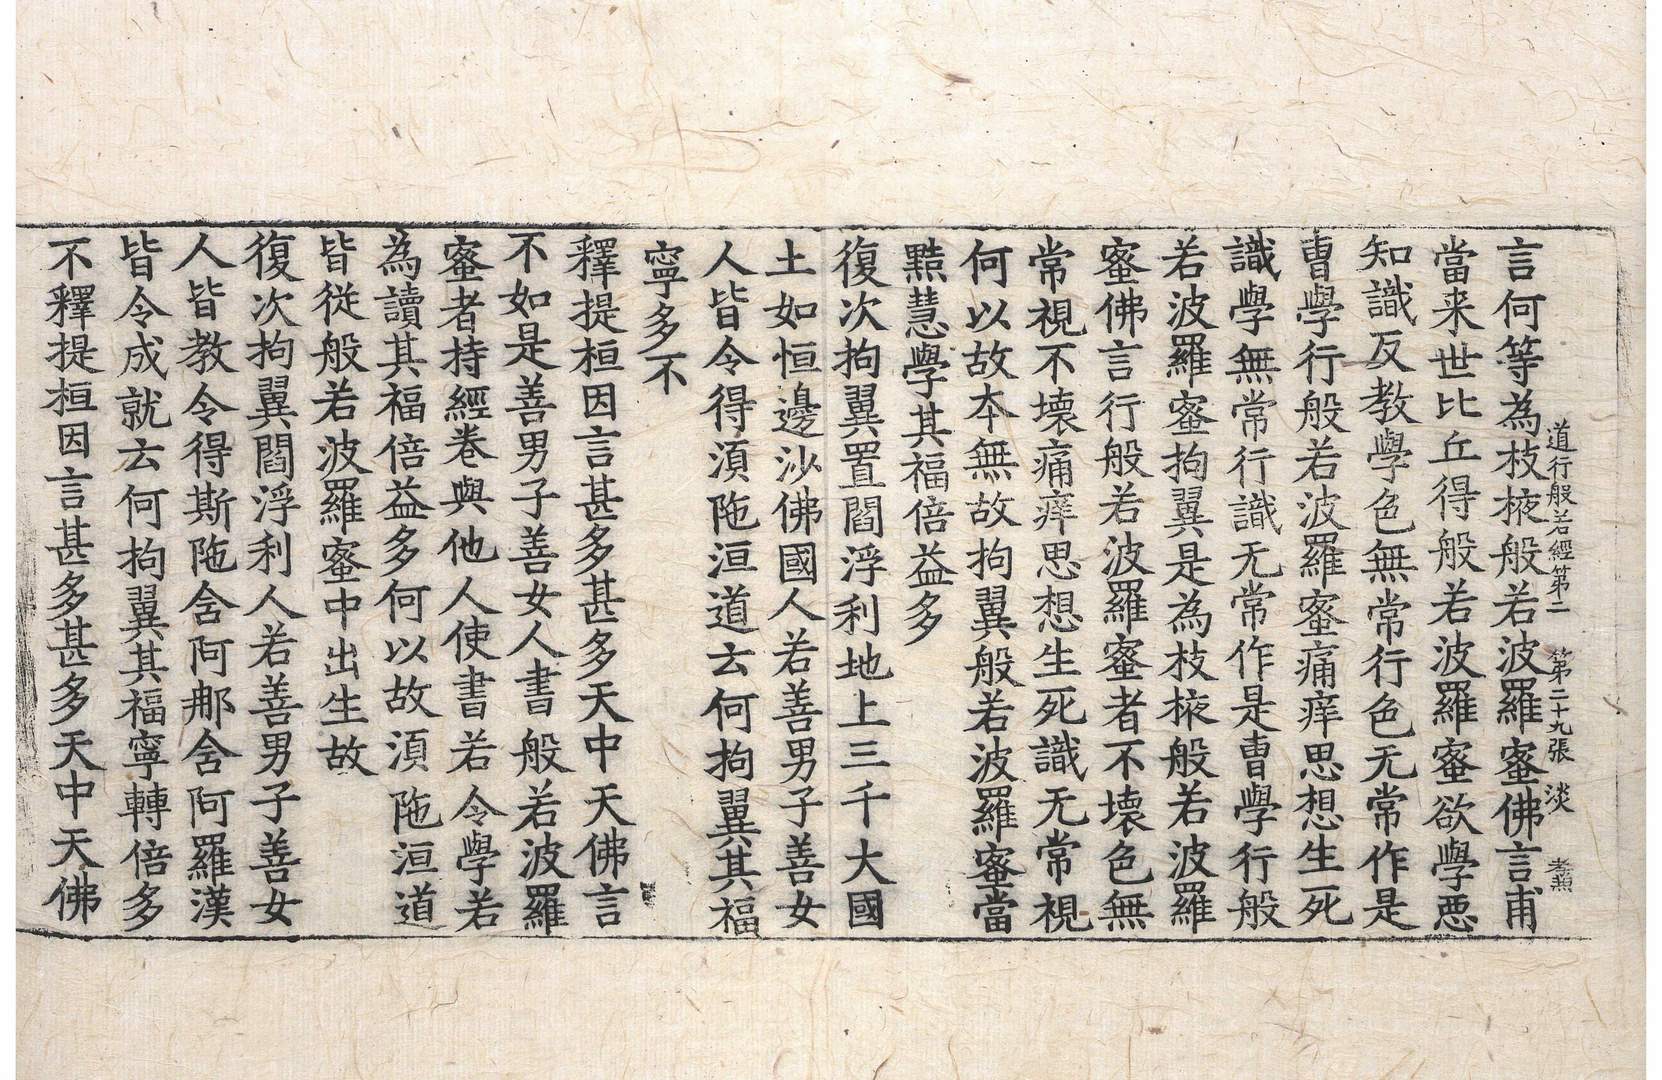 道行般若經第二　第二十九張　淡
言何等為枝掖般若波羅蜜佛言甫
當来世比丘得般若波羅蜜欲學惡
知識反教學色無常行色无常作是
曺學行般若波羅蜜痛痒思想生死
識學無常行識无常作是曺學行般
若波羅蜜拘翼是為枝掖般若波羅
蜜佛言行般若波羅蜜者不壞色無
常視不壞痛痒思想生死識无常視
何以故本無故拘翼般若波羅蜜當
黠慧學其福倍益多
復次拘翼置閻浮利地上三千大國
土如恒邊沙佛國人若善男子善女
人皆令得湏陁洹道云何拘翼其福
寧多不
釋提桓因言甚多甚多天中天佛言
不如是善男子善女人書般若波羅
蜜者持經卷與他人使書若令學若
為讀其福倍益多何以故湏陁洹道
皆從般若波羅蜜中出生故
復次拘翼閻浮利人若善男子善女
人皆教令得斯陁含阿那含阿羅漢
皆令成就云何拘翼其福寧轉倍多
不釋提桓因言甚多甚多天中天佛